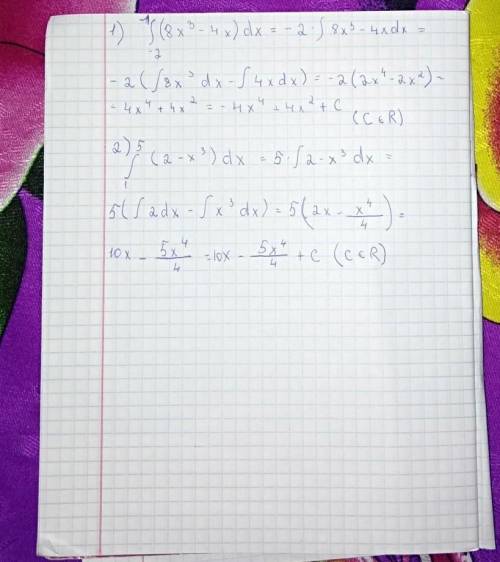 1) ∫₋₂⁻¹ (8x³ - 4x) dx = -2 · ∫ 8x³ - 4x dx =
- 2 ( ∫ 8x³ dx - ∫ 4x dx) = -2 (2x⁴ - 2x²) =
- 4x⁴ + 4x² = - 4x⁴ + 4x² + C
(C ∈ R)
2) ∫₁⁵ (2 - x³) dx = 5 · ∫ 2 - x³ dx =
5 ( ∫ 2dx - ∫ x³ dx) = 5 (2x - x⁴/4) =
10x - 5x⁴/4 = 10x - 5x⁴/4 + C (C ∈ R)